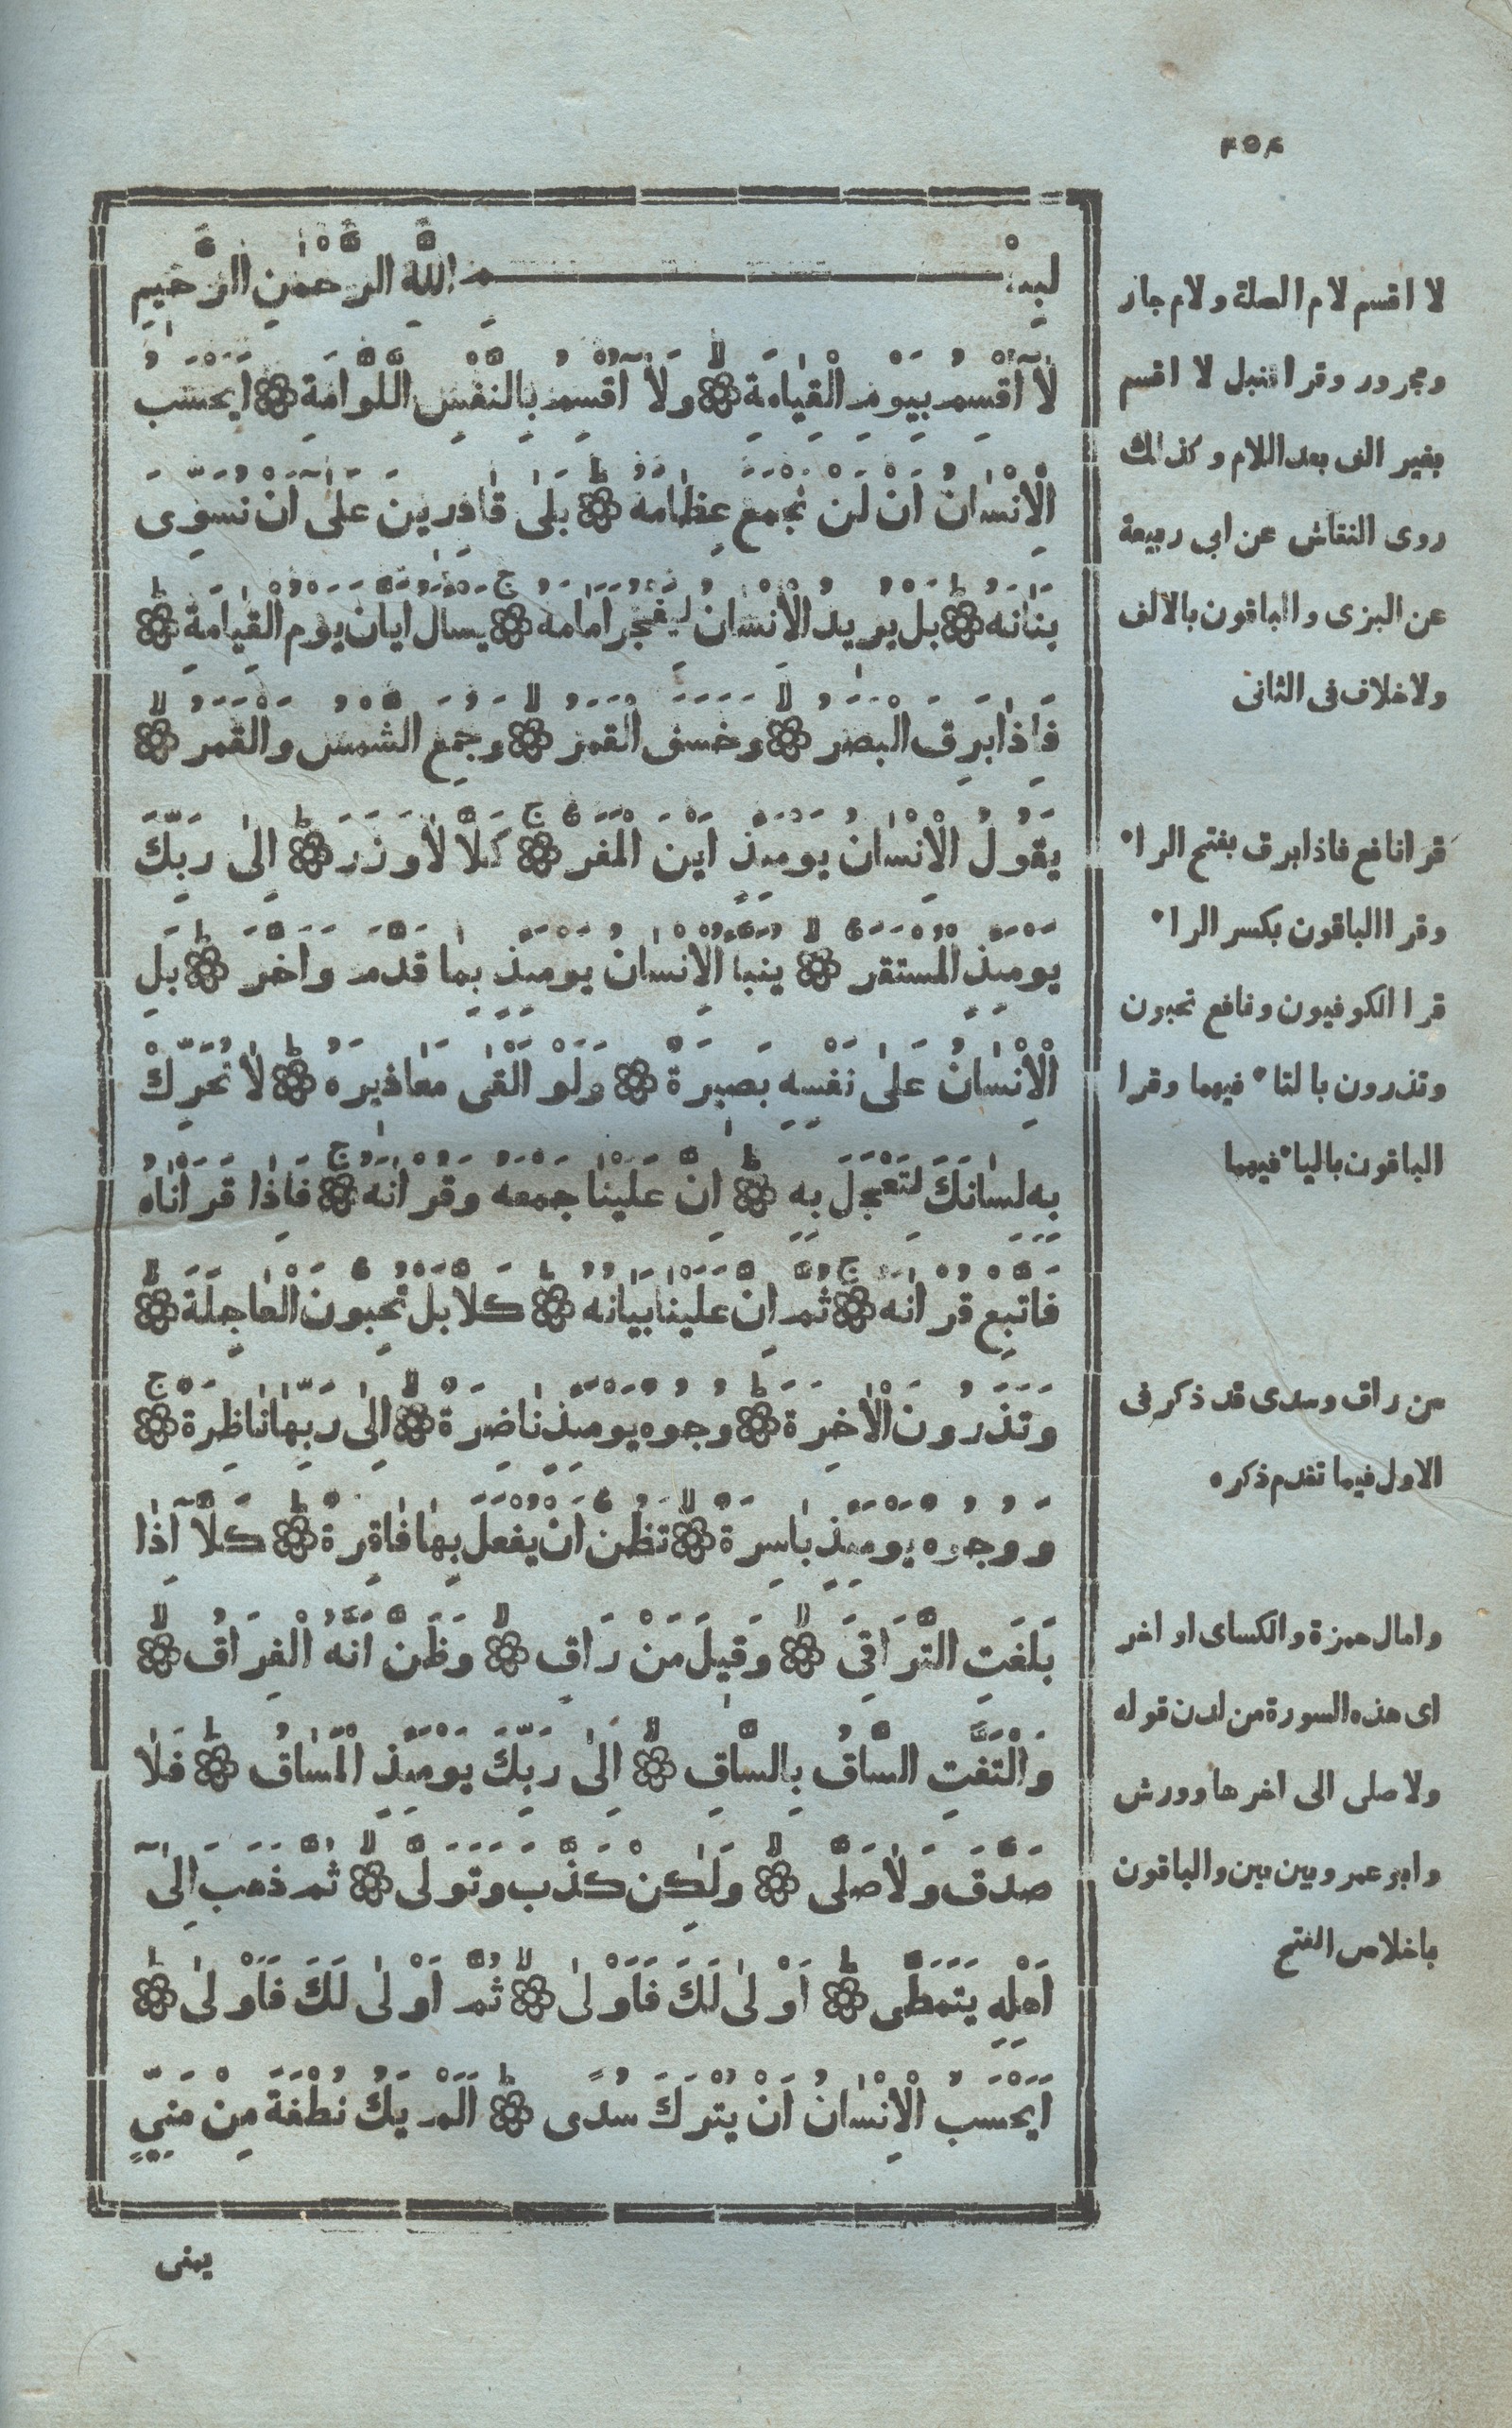 ٤٥٤
بِسْمِ اللَّهِ الرَّحْمٰنِ الرَّحِيمِ
لَآ اُقْسِمُ بِيَوْمِ الْقِيٰمَةِ ۙ وَلَآ اُقْسِمُ بِالنَّفْسِ اللَّوَّامَةِ اَيَحْسَبُ
الْاِنْسٰانُ اَنْ لَنْ نَجْمَعَ عِظٰامَهُ ۜ بَلٰى قٰادِرِينَ عَلٰٓى اَنْ نُسَوِّىَ
بَنٰانَهُ ۜ بَلْ يُرِيدُ الْاِنْسٰانُ لِيَفْجُرَ اَمٰامَهُ ۚ يَسْـَٔلُ اَيّٰانَ يَوْمُ الْقِيٰامَةِ ۜ
فَاِذٰا بَرِقَ الْبَصَرُ ۙ وَخَسَفَ الْقَمَرُ ۙ وَجُمِعَ الشَّمْسُ وَالْقَمَرُ ۙ
يَقُولُ الْاِنْسٰانُ يَوْمَئِذٍ اَيْنَ الْمَفَرُّ ۚ كَلَّا لٰا وَزَرَ ۜ اِلٰى رَبِّكَ
يَوْمَئِذٍ الْمُسْتَقَرُّ ۙ يُنَبَّؤُا الْاِنْسٰانُ يَوْمَئِذٍ بِمٰا قَدَّمَ وَاَخَّرَ ۜ بَلِ
الْاِنْسٰانُ عَلٰى نَفْسِهِ بَصِيرَةٌ وَلَوْ اَلْقٰى مَعٰاذِيرَهُ ۜ لٰا تُحَرِّكْ
بِهِ لِسٰانَكَ لِتَعْجَلَ بِهِ ۜ اِنَّ عَلَيْنٰا جَمْعَهُ وَقُرْاٰنَهُ ۚ فَاِذٰا قَرَاْنٰاهُ
فَاتَّبِعْ قُرْاٰنَهُ ۚ ثُمَّ اِنَّ عَلَيْنٰا بَيٰانَهُ ۜ كَلَّا بَلْ تُحِبُّونَ الْعٰاجِلَةَ ۙ
وَتَذَرُونَ الْاٰخِرَةَ ۜ وُجُوهٌ يَوْمَئِذٍ نٰاضِرَةٌ ۙ اِلٰى رَبِّهٰا نٰاظِرَةٌ ۚ
وَوُجُوهٌ يَوْمَئِذٍ بٰاسِرَةٌ ۙ تَظُنُّ اَنْ يُفْعَلَ بِهٰا فٰاقِرَةٌ ۜ كَلَّآ اِذٰا
بَلَغَتِ التَّرَاقِىَ ۙ وَقِيلَ مَنْ رَاقٍ ۙ وَظَنَّ اَنَّهُ الْفِرَاقُ ۙ
وَالْتَفَّتِ السّٰاقُ بِالسّٰاقِ ۙ اِلٰى رَبِّكَ يَوْمَئِذٍ الْمَسٰاقُ ۜ فَلٰا
صَدَّقَ وَلٰا صَلّٰى ۙ وَلٰكِنْ كَذَّبَ وَتَوَلّٰى ۙ ثُمَّ ذَهَبَ اِلٰٓى
اَهْلِهِ يَتَمَطّٰى ۜ اَوْلٰى لَكَ فَاَوْلٰى ۙ ثُمَّ اَوْلٰى لَكَ فَاَوْلٰى ۜ
اَيَحْسَبُ الْاِنْسٰانُ اَنْ يُتْرَكَ سُدًى ۜ اَلَمْ يَكُ نُطْفَةً مِنْ مَنِيٍّ
يمنى
لا اقسم لام الصلة ولام جار
ومجرور وقرا قنبل لا اقسم
بغير الف بعد اللام وكذالك
روى النقاش عن ابى ربيعة
عن البزى والباقون بالالف
ولاخلاف فى الثانى
قرا نافع فاذا برق بفتح الراء
وقرا الباقون بكسر الراء
قرا الكوفيون ونافع تحبون
وتذرون بالتاء فيهما وقرا
الباقون بالياء فيهما
من راق وسدى قد ذكر فى
الاول فيما تقدم ذكره
وامال حمزة والكساى اواخر
اى هذه السورة من لدن قوله
ولا صلى الى اخرها وورش
وابو عمرو بين بين والباقون
باخلاص الفتح